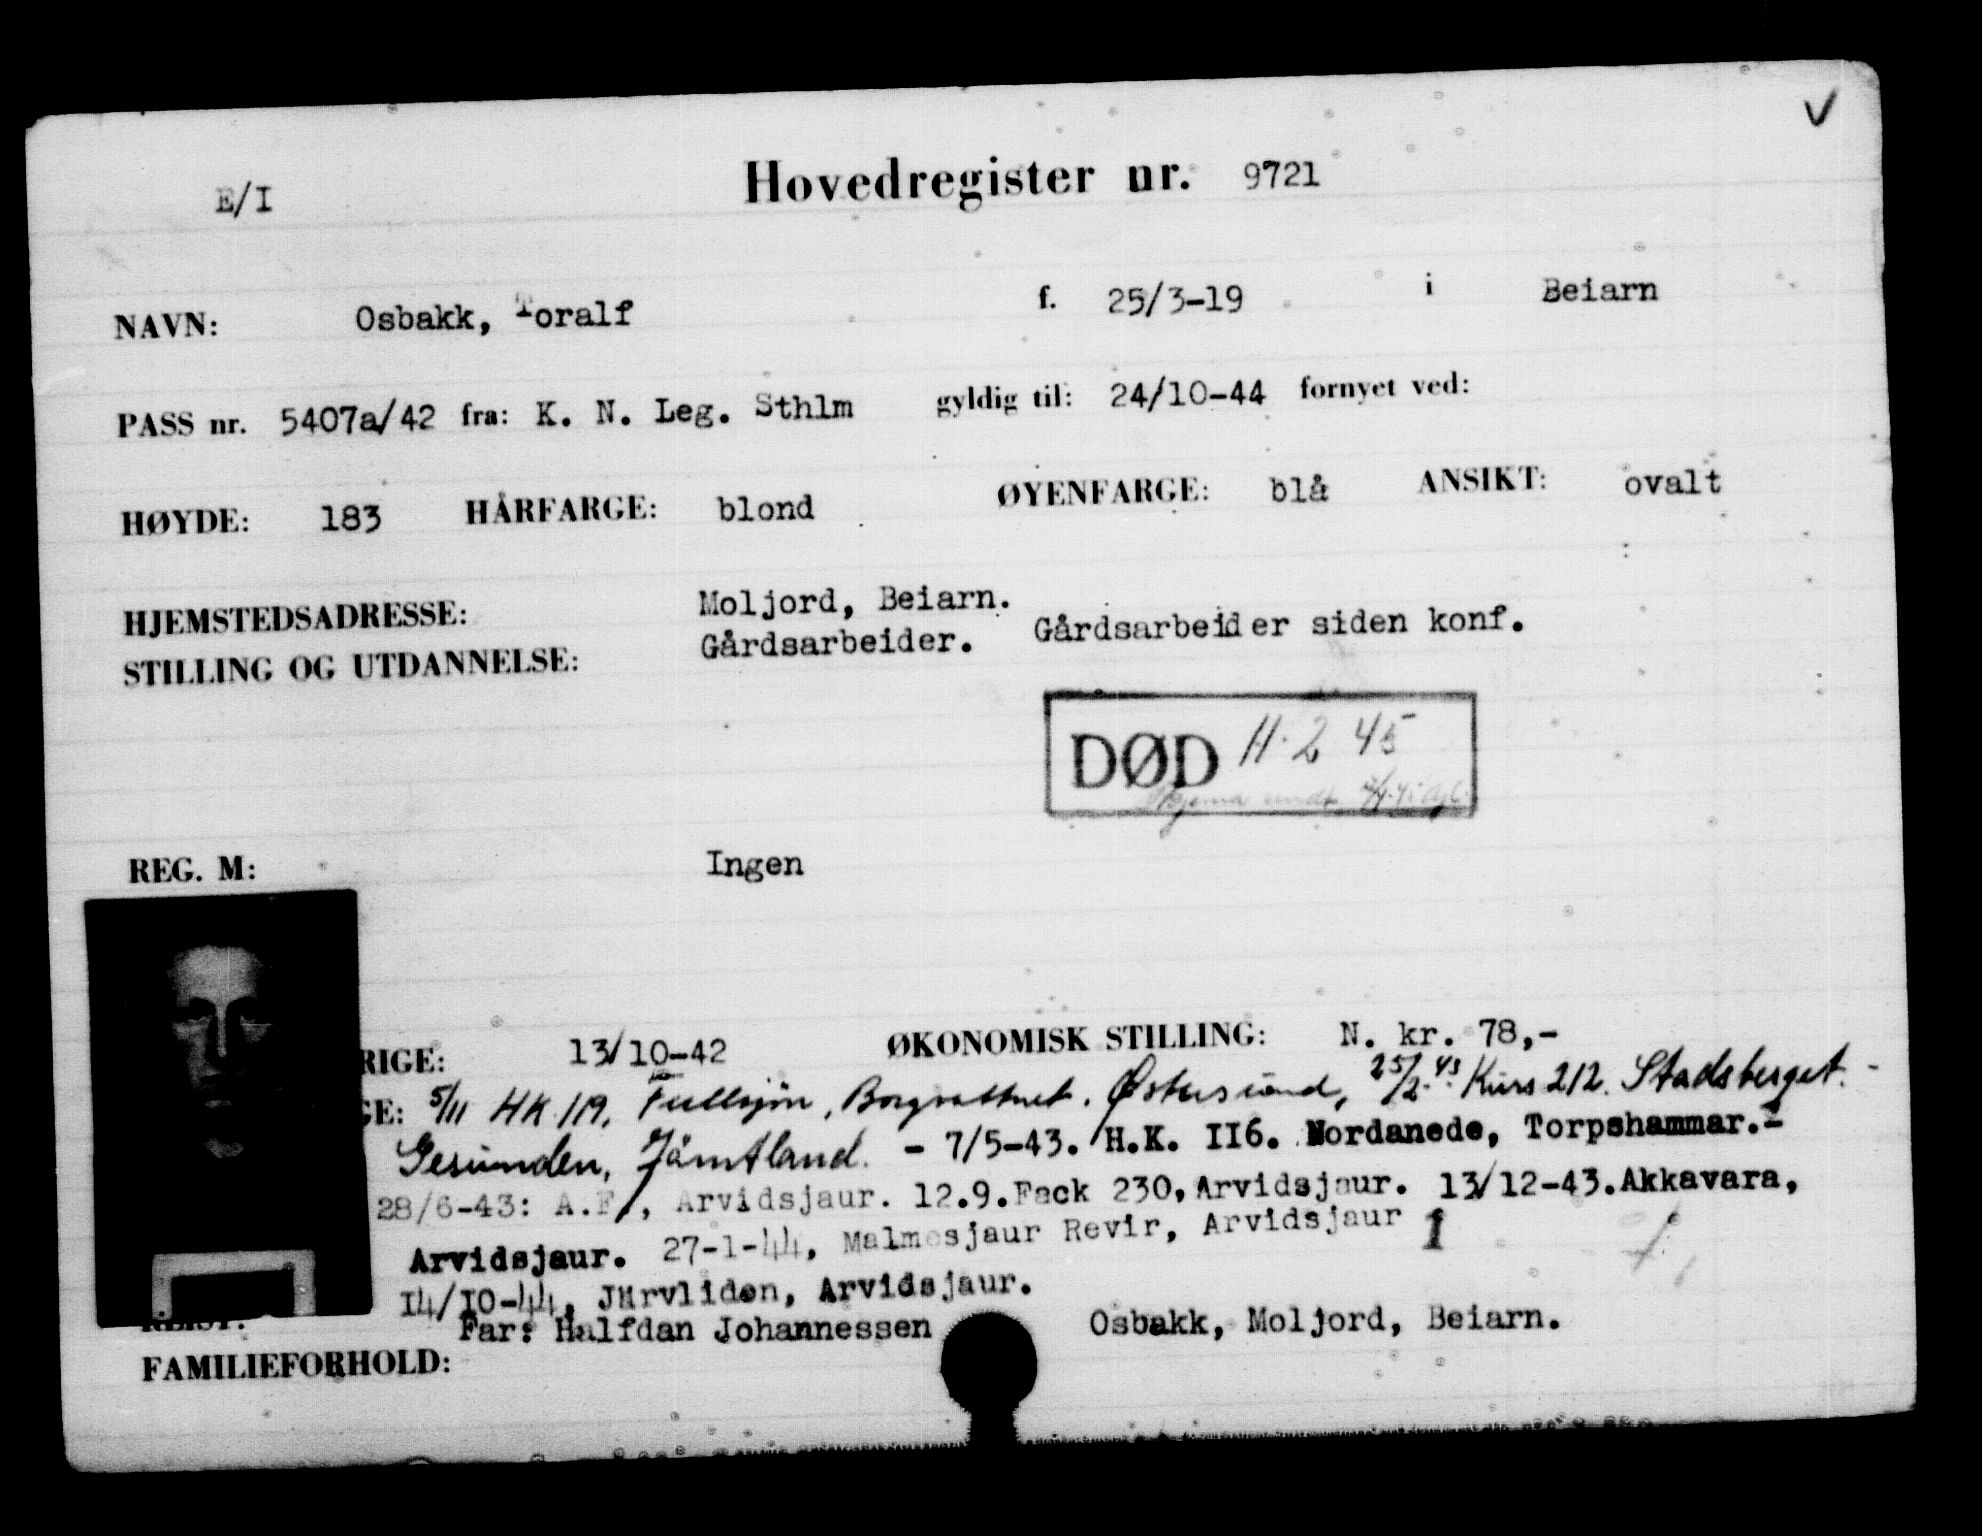 E/I Hovedregister nr. 9721
NAVN: Osbakk, Toralf f. 25/3-19 i Beiarn
PASS nr. 5407a/42 fra: K. N. Leg. Sthlm gyldig til: 24/10-44 fornyet ved:
HØYDE: 183 HÅRFARGE: blond ØYENFARGE: blå ANSIKT: ovalt
HJEMSTEDSADRESSE: Moljord, Beiarn.
STILLING OG UTDANNELSE: Gårdsarbeider. Gårdsarbeider siden konf.
DØD 11.2 45
REG. M: Ingen
RIGE: 13/10-42 ØKONOMISK STILLING: N. kr. 78,-
GE: 5/11 HK 119, Fullsjön, Borgvattnet. Østersund, 25/2.43 Kurs 212. Stadsberget. -
Gesunden, Jämtland. - 7/5-43. H.K. 116. Nordanede, Torpshammar.-
28/6-43: A.F., Arvidsjaur. 12.9. Fack 230, Arvidsjaur. 13/12-43. Akkavara,
Arvidsjaur. 27-1-44, Malmesjaur Revir, Arvidsjaur
14/10-44, Järvliden, Arvidsjaur.
Far: Halfdan Johannessen Osbakk, Moljord, Beiarn.
FAMILIEFORHOLD: